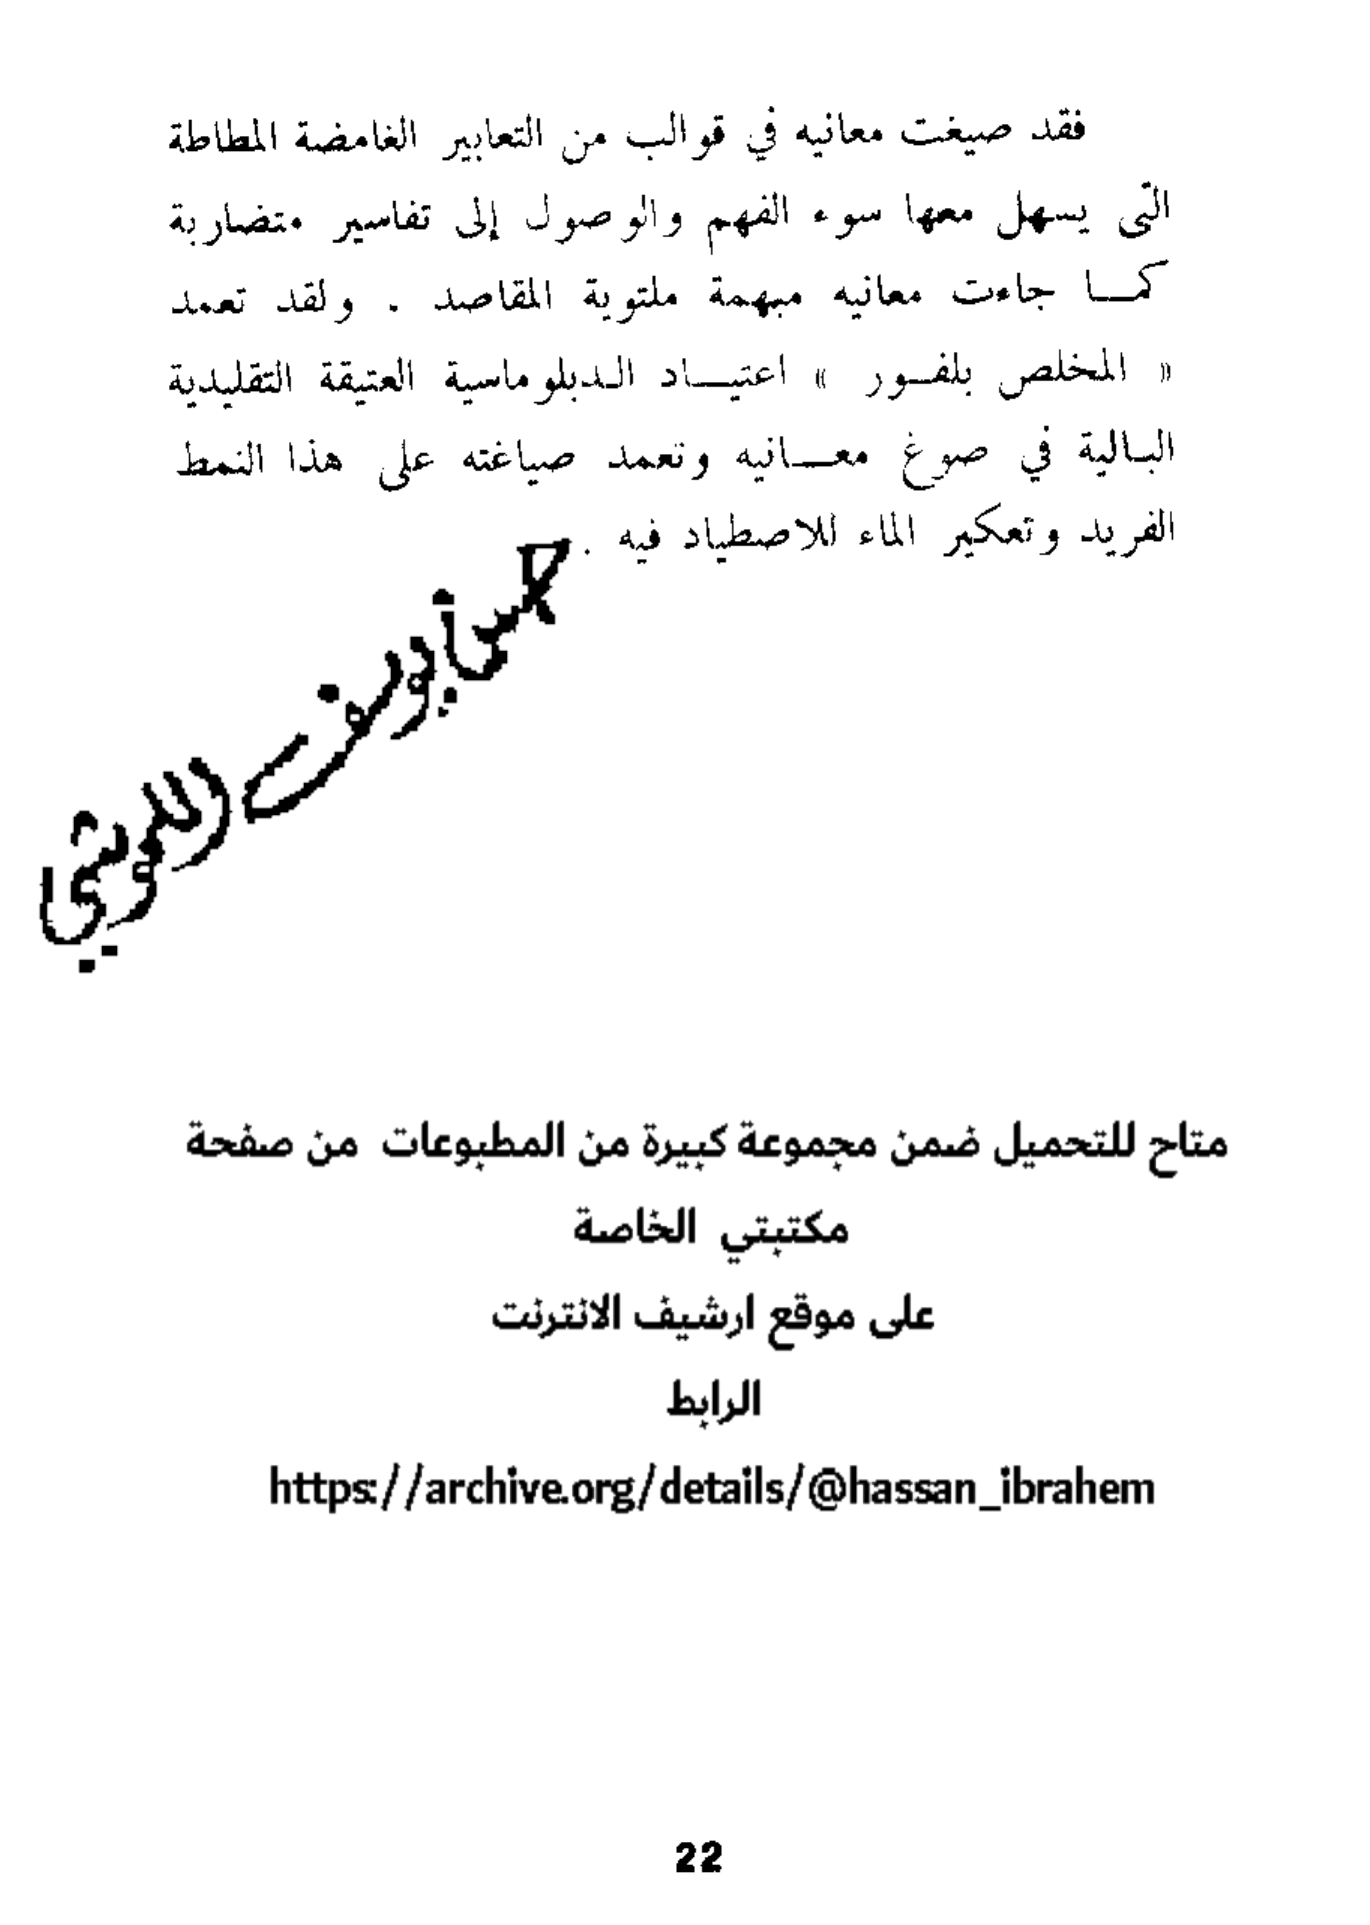 فقد صيغت معانيه في قوالب من التعابير الغامضة المطاطة
التى يسهل معها سوء الفهم والوصول إلى تفاسير متضاربة
كمــا جاءت معانيه مبهمة ملتوية المقاصد . ولقد تعمد
« المخلص بلفــور » اعتيــاد الدبلوماسية العتيقة التقليدية
البالية في صوغ معــانيه وتعمد صياغته على هذا النمط
الفريد وتعكير الماء للاصطياد فيه .
متاح للتحميل ضمن مجموعة كبيرة من المطبوعات من صفحة
مكتبتي الخاصة
على موقع ارشيف الانترنت
الرابط
https://archive.org/details/@hassan_ibrahem
22